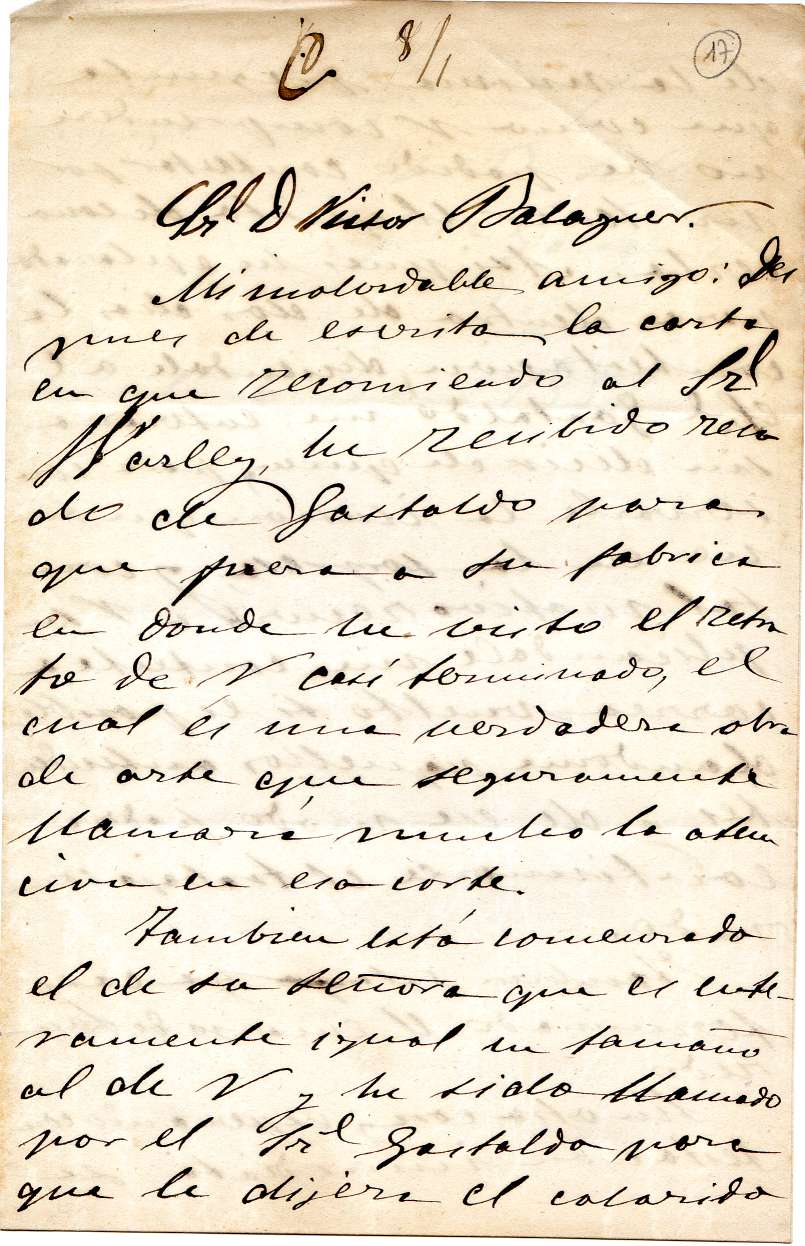 C.º 8/1
17
Sr. D Victor Balaguer.
Mi inolvidable amigo: Des
pues de escrita la carta
en que recomiendo al Sr.
he recibido reca
do de Gastaldo para
que fuera a su fabrica
en donde he visto el retra
to de V casi terminado, el
cual és una verdadera obra
de arte que seguramente
llamará mucho la aten
cion en esa corte.
Tambien está comenzado
el de su señora que es ente-
ramente igual en tamaño
al de V y he sido llamado
por el Sr. Gastaldo para
que le dijera el colorido